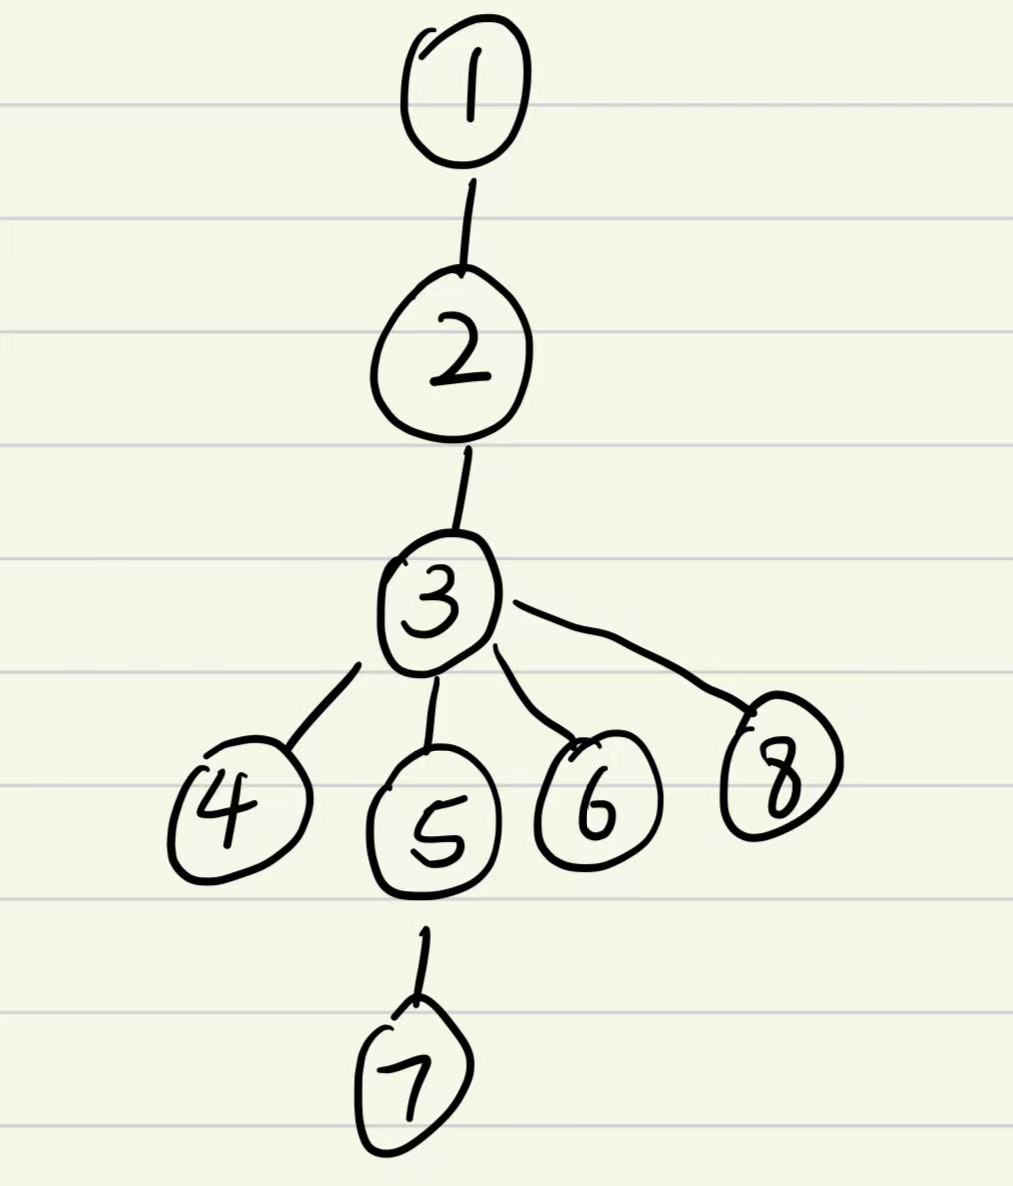 1
2
3
4 5 6 8
7